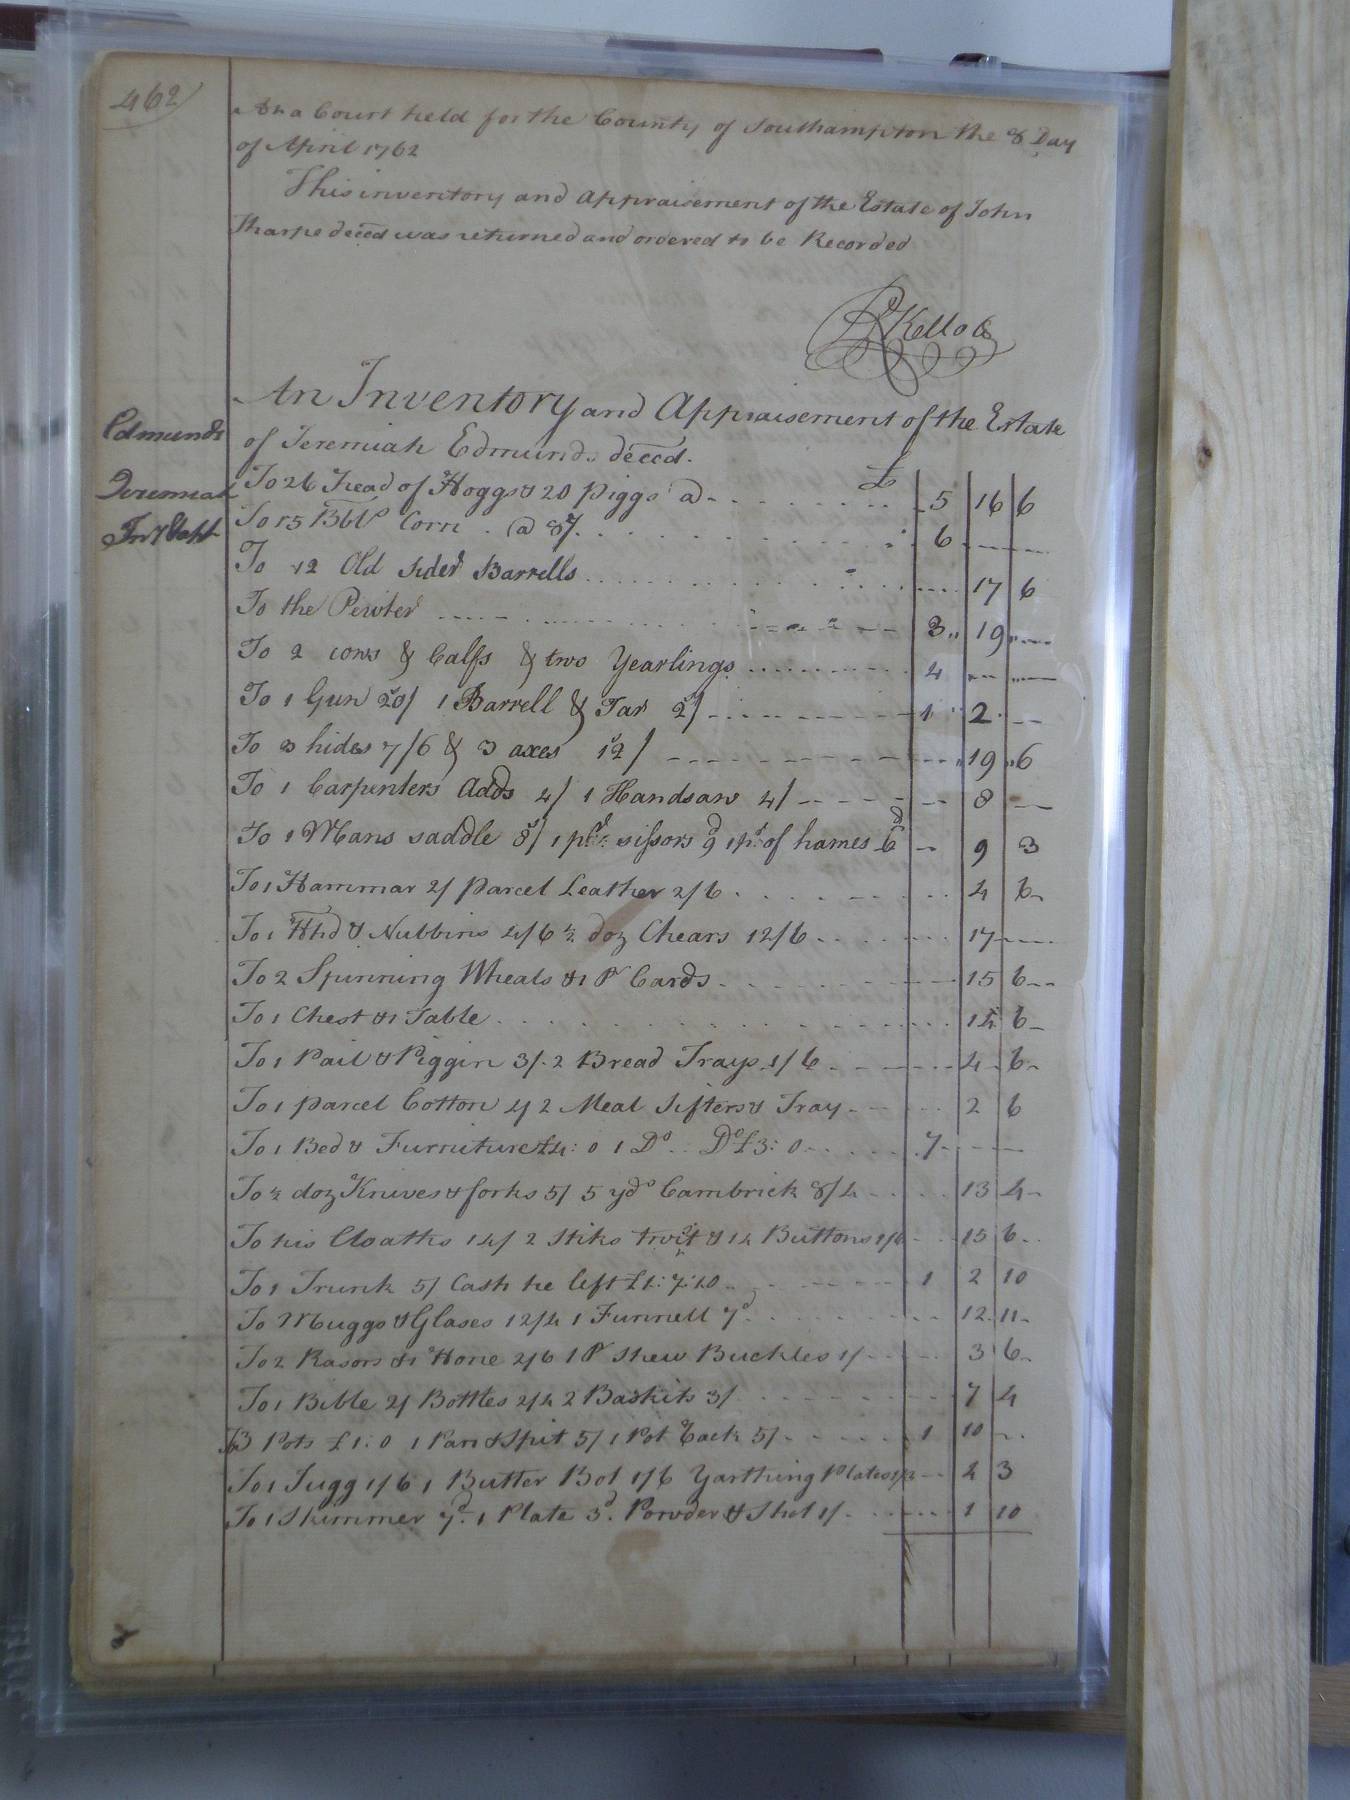 462
At a Court held for the County of Southampton the 8 Day
of April 1762
This inventory and appraisement of the Estate of John
Tharpe deced was returned and ordered to be Recorded
RKello Cs
An Inventory and Appraisement of the Estate
of Jeremiah Edmunds deced.
Edmunds
Jeremiah
£
To 26 Head of Hoggs & 20 Piggs @ 5 16 6
To 15 Bbls Corn @ 8/ 6
To 12 Old sider Barrells 17 6
To the Pewter 3 19
To 2 cows & Calfs & two Yearlings 4
To 1 Gun 20/ 1 Barrell & Tar 2/ 1 2
To 3 hides 7/6 & 3 axes 12/ 19 6
To 1 Carpenters Adds 4/ 1 Handsaw 4/ 8
To 1 Mans saddle 8/ 1 pr sissors 9d 1 pr of hames 6d 9 3
To 1 Hammar 2/ parcel Leather 2/6 4 6
To 1 Hhd & Nubbins 4/6 ½ doz Chears 12/6 17
To 2 Spinning Wheals & 1 Pr Cards 15 6
To 1 Chest & 1 Table 14 6
To 1 Pail & Piggin 3/ 2 Bread Trays 1/6 4 6
To 1 parcel Cotton 2 Meal Sifters & Tray 2 6
To 1 Bed & Furniture £4: 0 1 Do Do £3: 0 7
To ½ doz Knives & forks 5/ 5 yds Cambrick 8/4 13 4
To his Cloaths 14/ 2 Stiks twist & 14 Buttons 1/6 15 6
To 1 Trunk 5/ Cash he left 1 2 10
To Muggs & Glases 12/4 1 Funnell 7d 12 11
To 2 Rasors & 1 Hone 2/6 1 Pr Shew Buckles 1/ 3 6
To 1 Bible 2/ Bottles 2/4 2 Baskits 3/ 7 4
To 3 Pots £1: 0 1 Pan & Spit 5/ 1 Pot Rack 5/ 1 10
To 1 Jugg 1/6 1 Butter Bot 1/6 Yarthing Plates 2 3
To 1 Skimmer 7d. 1 Plate 3d. Powder & Shot 1/ 1 10